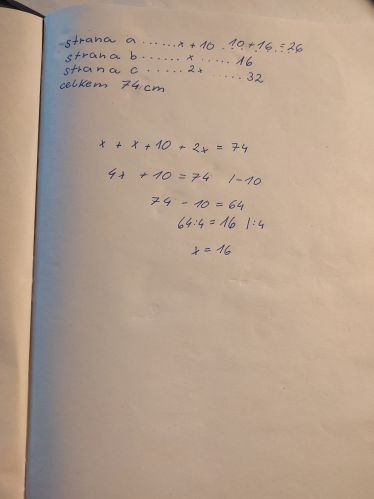 strana a ...... x + 10 . 10 + 16 = 26
strana b ...... x ...... 16
strana c ..... 2x ...... 32
celkem 74 cm
x + x + 10 + 2x = 74
4x + 10 = 74 /-10
74 - 10 = 64
64:4 = 16 /:4
x = 16